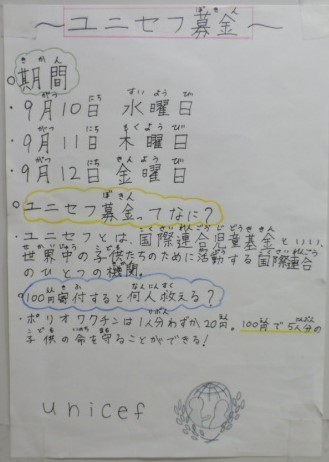 ～ユニセフ募金～
○期間
・9月10日 水曜日
・9月11日 木曜日
・9月12日 金曜日
○ユニセフ募金ってなに？
・ユニセフとは、国際連合児童基金といい、
世界中の子供たちのために活動する国際連合
のひとつの機関。
○100円寄付すると何人救える？
・ポリオワクチンは1人分わずか20円。100円で5人分の
子供の命を守ることができる！
unicef